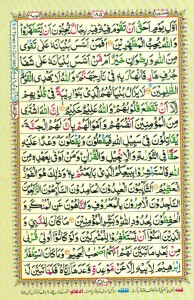 ١٨٥
اَوَّلِ يَوْمٍ اَحَقُّ اَنْ تَقُوْمَ فِيْهِ فِيْهِ رِجَالٌ يُّحِبُّوْنَ اَنْ يَّتَطَهَّرُوْا
وَاللّٰهُ يُحِبُّ الْمُطَّهِّرِيْنَ اَفَمَنْ اَسَّسَ بُنْيَانَهٗ عَلٰى تَقْوٰى
مِنَ اللّٰهِ وَرِضْوَانٍ خَيْرٌ اَمْ مَّنْ اَسَّسَ بُنْيَانَهٗ عَلٰى شَفَا
جُرُفٍ هَارٍ فَانْهَارَ بِهٖ فِيْ نَارِ جَهَنَّمَ وَاللّٰهُ لَا يَهْدِى الْقَوْمَ
الظّٰلِمِيْنَ لَا يَزَالُ بُنْيَانُهُمُ الَّذِيْ بَنَوْا رِيْبَةً فِيْ قُلُوْبِهِمْ
اِلَّآ اَنْ تَقَطَّعَ قُلُوْبُهُمْ وَاللّٰهُ عَلِيْمٌ حَكِيْمٌ اِنَّ اللّٰهَ اشْتَرٰى
مِنَ الْمُؤْمِنِيْنَ اَنْفُسَهُمْ وَاَمْوَالَهُمْ بِاَنَّ لَهُمُ الْجَنَّةَ
يُقَاتِلُوْنَ فِيْ سَبِيْلِ اللّٰهِ فَيَقْتُلُوْنَ وَيُقْتَلُوْنَ وَعْدًا عَلَيْهِ حَقًّا
فِى التَّوْرٰىةِ وَالْاِنْجِيْلِ وَالْقُرْاٰنِ وَمَنْ اَوْفٰى بِعَهْدِهٖ مِنَ
اللّٰهِ فَاسْتَبْشِرُوْا بِبَيْعِكُمُ الَّذِيْ بَايَعْتُمْ بِهٖ وَذٰلِكَ هُوَ الْفَوْزُ
الْعَظِيْمُ اَلتَّآئِبُوْنَ الْعٰبِدُوْنَ الْحٰمِدُوْنَ السَّآئِحُوْنَ الرّٰكِعُوْنَ
السّٰجِدُوْنَ الْاٰمِرُوْنَ بِالْمَعْرُوْفِ وَالنَّاهُوْنَ عَنِ الْمُنْكَرِ وَ
الْحٰفِظُوْنَ لِحُدُوْدِ اللّٰهِ وَبَشِّرِ الْمُؤْمِنِيْنَ مَا كَانَ لِلنَّبِيِّ وَ
الَّذِيْنَ اٰمَنُوْٓا اَنْ يَّسْتَغْفِرُوْا لِلْمُشْرِكِيْنَ وَلَوْ كَانُوْٓا اُولِيْ قُرْبٰى
مِنْۢ بَعْدِ مَا تَبَيَّنَ لَهُمْ اَنَّهُمْ اَصْحٰبُ الْجَحِيْمِ وَمَا كَانَ اسْتِغْفَارُ
اِبْرٰهِيْمَ لِاَبِيْهِ اِلَّا عَنْ مَّوْعِدَةٍ وَّعَدَهَآ اِيَّاهُ فَلَمَّا تَبَيَّنَ لَهٗٓ